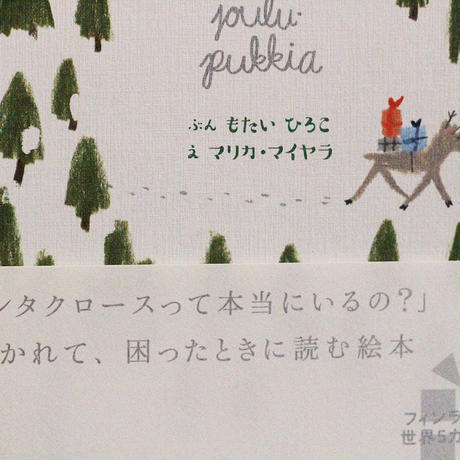 joulu-
pukkia
ぶん もたい ひろこ
え マリカ・マイヤラ
ンタクロースって本当にいるの？」
かれて、困ったときに読む絵本
フィンラ
世界5カ